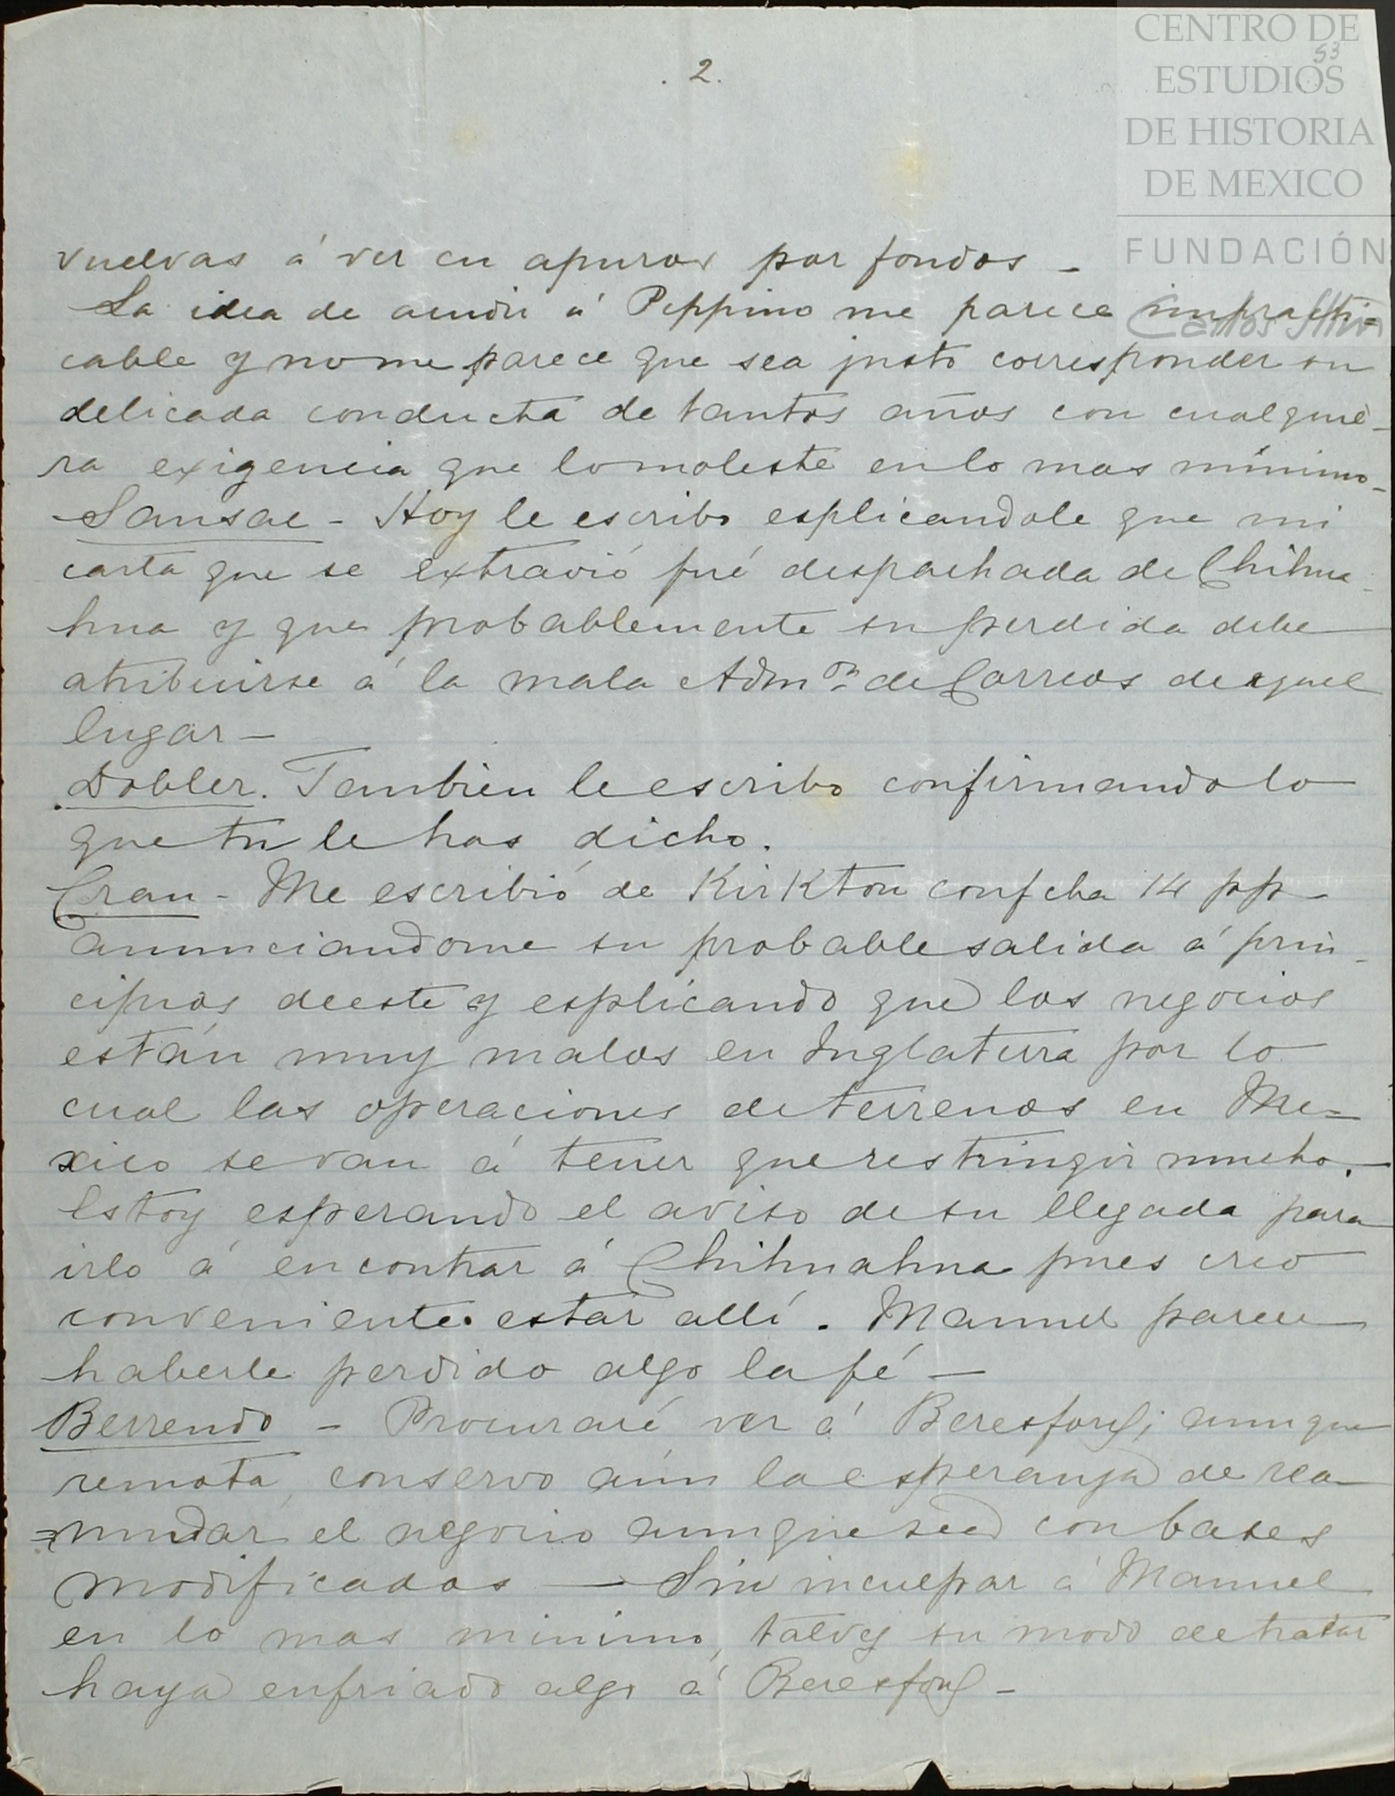 CENTRO DE
ESTUDIOS
DE HISTORIA
DE MEXICO
FUNDACIÓN
Carlos Slim
53
. 2.
vuelvas á ver en apuros por fondos _
La idea de acudir á Peppino me parece impracti=
cable y no me parece que sea justo corresponder su
delicada conducta de tantos años con cualquie-
ra exigencia que lo moleste en lo mas mínimo_
Sansac - Hoy le escribo esplicandole que mi
carta que se extravió fué despachada de Chihua_
hua y que probablemente su perdida debe
atribuirse á la mala Admon. de Correos de aquel
lugar _
Dobler. Tambien le escribo confirmando lo
que tu le has dicho.
Cran - Me escribió de Kirkton con fcha 14 pp_
anunciandome su probable salida á prin_
cipios de este y esplicando que los negocios
están muy malos en Inglaterra por lo
cual las operaciones de terrenos en Me=
xico se van á tener que restringir mucho._
Estoy esperando el aviso de su llegada para
irlo á encontrar á Chihuahua pues creo
conveniente estar allí. Manuel parece
haberle perdido algo la fé _
Berrendo - Procuraré ver á Beresford; aunque
remota, conservo aún la esperanza de rea_
=nudar el negocio aunque sea con bases
modificadas — Sin inculpar á Manuel
en lo mas minimo, talvez su modo de tratar
haya enfriado algo á Beresford _